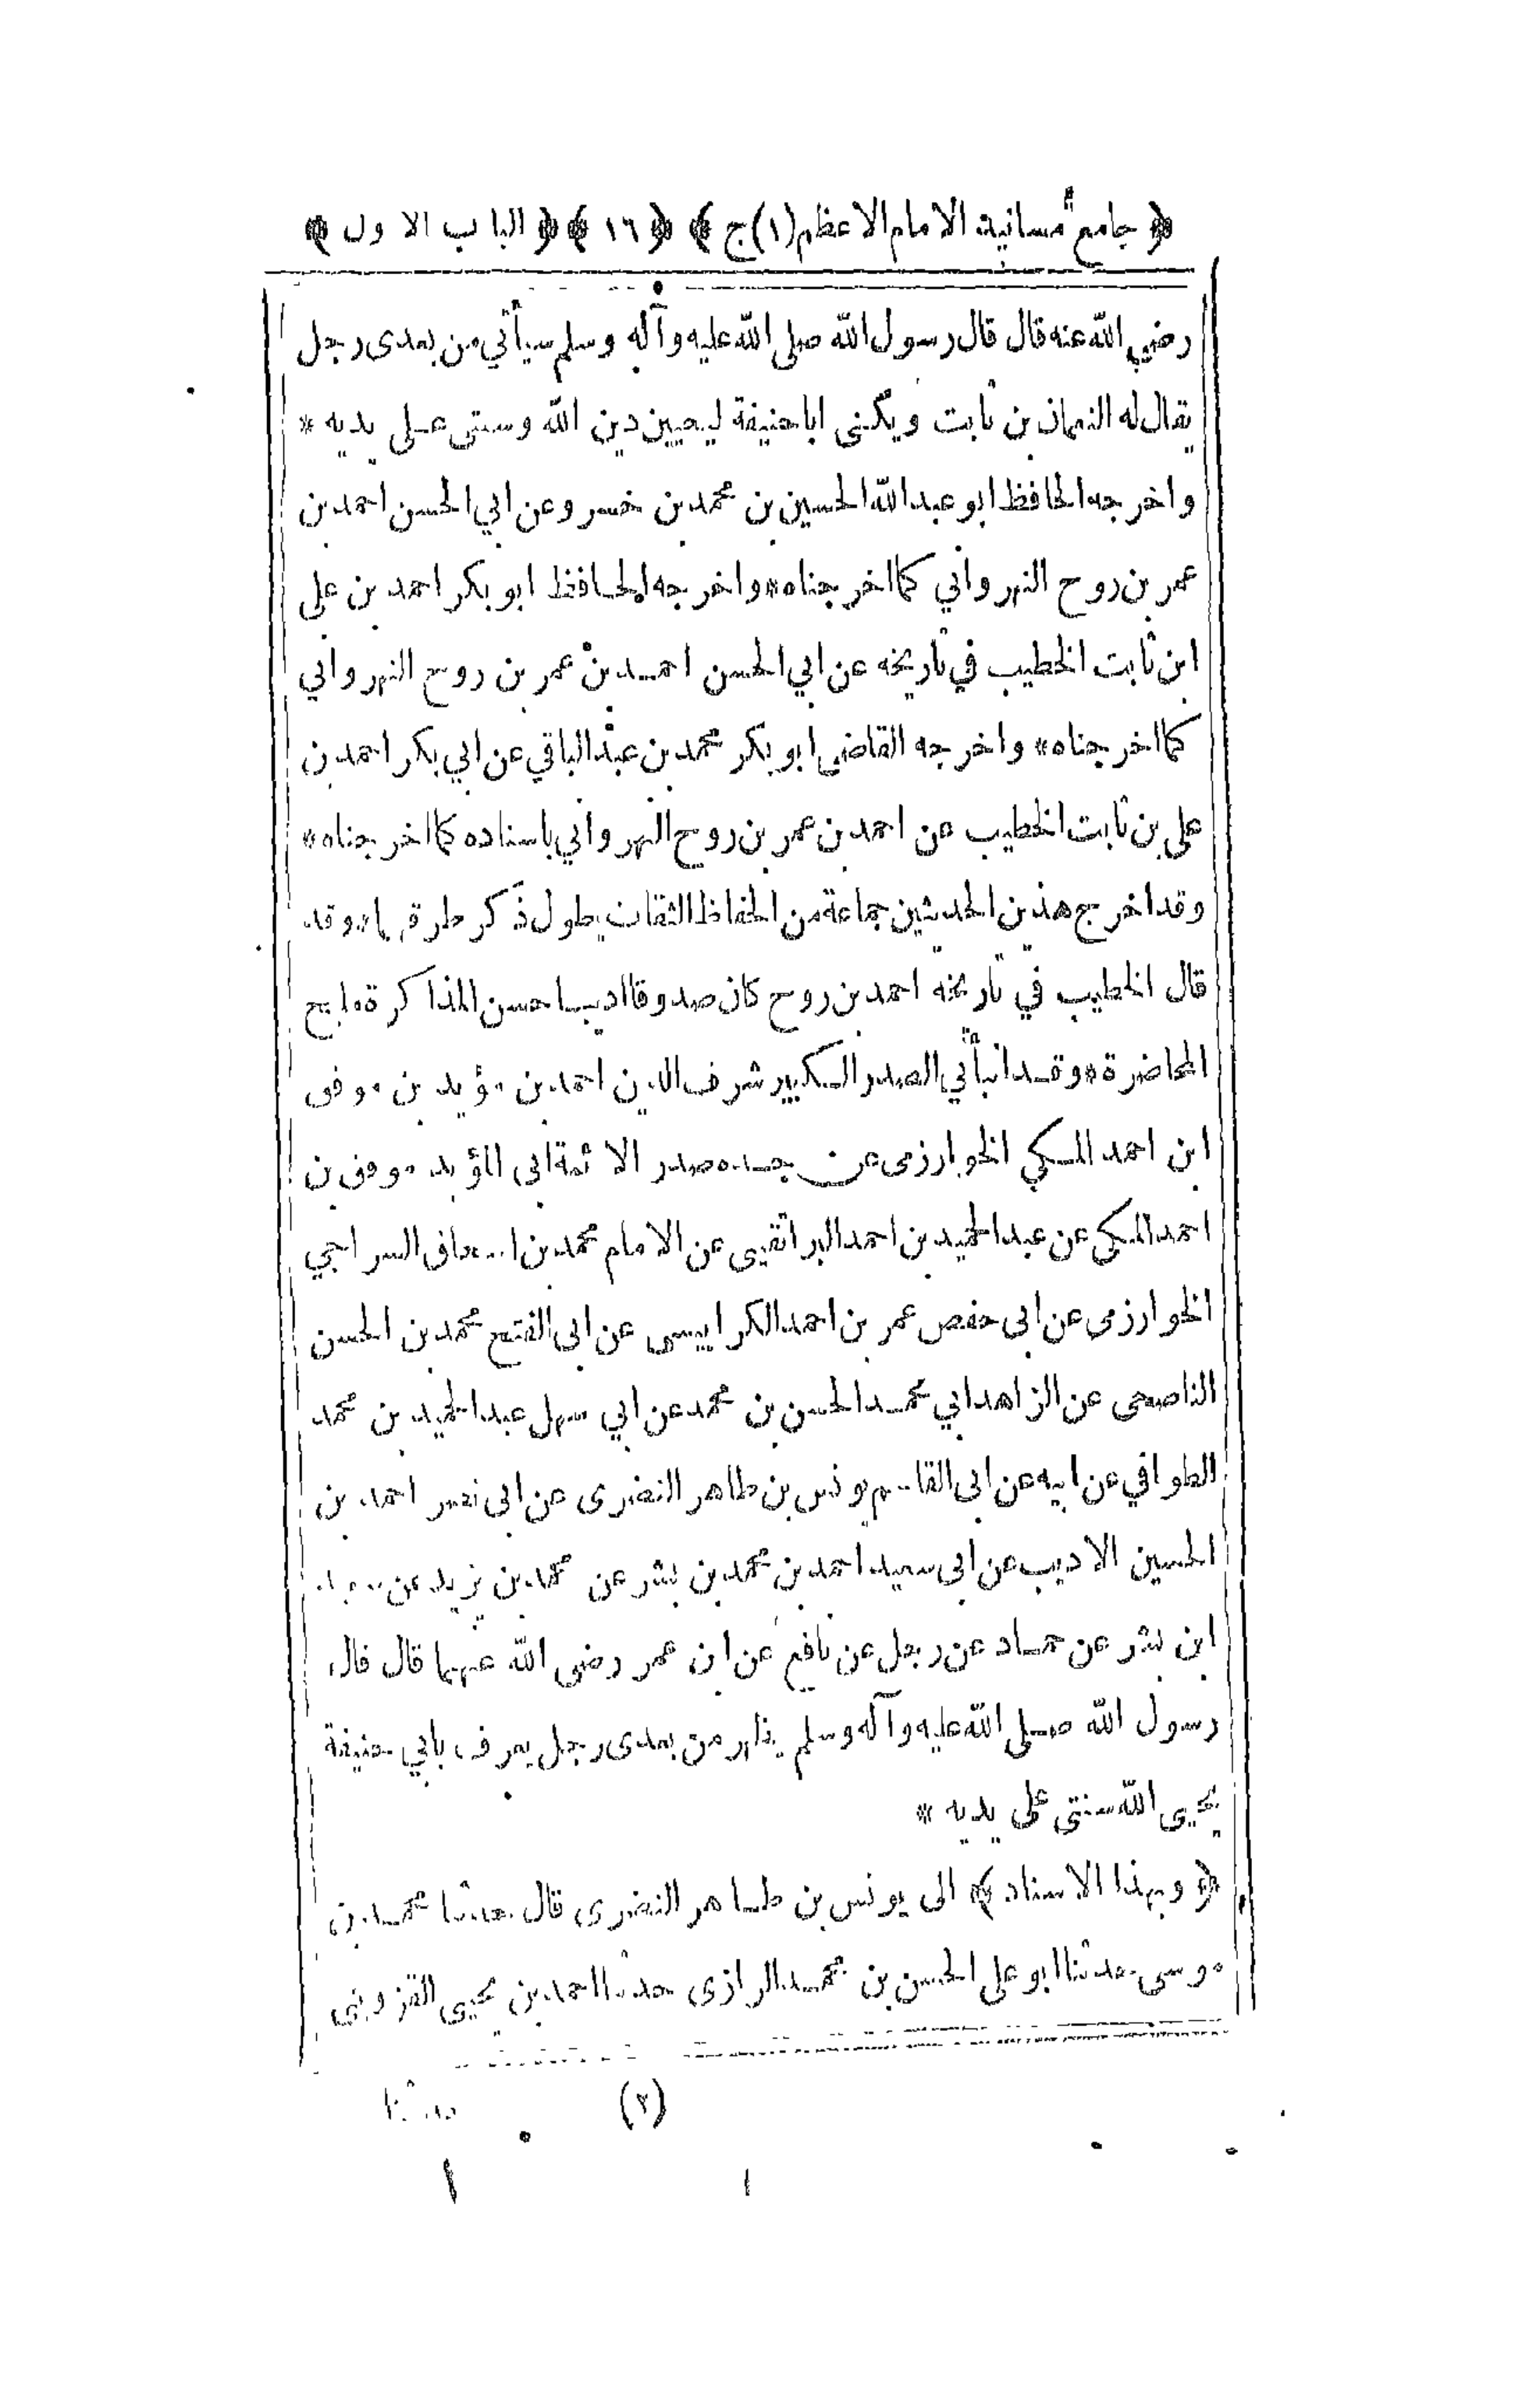 ﴿ جامع مسانيد الامام الاعظم (١) ج ﴾ ﴿ ١٦ ﴾ ﴿ الباب الاول ﴾
رضي الله عنه قال قال رسول الله صلى الله عليه وآله وسلم سيأتي من بعدى رجل
يقال له النعمان بن ثابت ويكنى ابا حنيفة ليحيين دين الله وسنتى على يديه *
واخرجه الحافظ ابو عبد الله الحسين بن محمد بن خسرو عن ابي الحسن احمد بن
عمر بن روح النهرواني كما اخرجناه * واخرجه الحافظ ابو بكر احمد بن على
ابن ثابت الخطيب في تاريخه عن ابي الحسن احمد بن عمر بن روح النهرواني
كما اخرجناه * واخرجه القاضى ابو بكر محمد بن عبد الباقي عن ابي بكر احمد بن
على بن ثابت الخطيب عن احمد بن عمر بن روح النهرواني باسناده كما اخرجناه *
وقد اخرج هذين الحديثين جماعة من الحفاظ الثقات يطول ذكر طرقها * وقد
قال الخطيب في تاريخه احمد بن روح كان صدوقا اديبا حسن المذاكرة مليح
المحاضرة * وقد انبأني الصدر الكبير شرف الدين احمد بن مؤيد بن موفق
ابن احمد المكي الخوارزمى عن جده صدر الائمة ابى المؤيد موفق بن
احمد المكى عن عبد الحميد بن احمد البراتقينى عن الامام محمد بن اسحاق السراجي
الخوارزمى عن ابى حفص عمر بن احمد الكرابيسى عن ابى الفتح محمد بن الحسن
الناصحى عن الزاهد ابي محمد الحسن بن محمد عن ابي سهل عبد الحميد بن محمد
الطوافي عن ابيه عن ابى القاسم يونس بن طاهر النضرى عن ابى نصر احمد بن
الحسين الاديب عن ابى سعيد احمد بن محمد بن بشر عن محمد بن يزيد عن
ابن بشر عن حماد عن رجل عن نافع عن ابن عمر رضى الله عنهما قال قال
رسول الله صلى الله عليه وآله وسلم يظهر من بعدى رجل يعرف بابي حنيفة
يحيى الله سنتى على يديه *
﴿ وبهذا الاسناد ﴾ الى يونس بن طاهر النضرى قال حدثنا محمد بن
موسى حدثنا ابو على الحسن بن محمد الرازى حدثنا احمد بن يحيى القزوينى
(٢) حدثنا